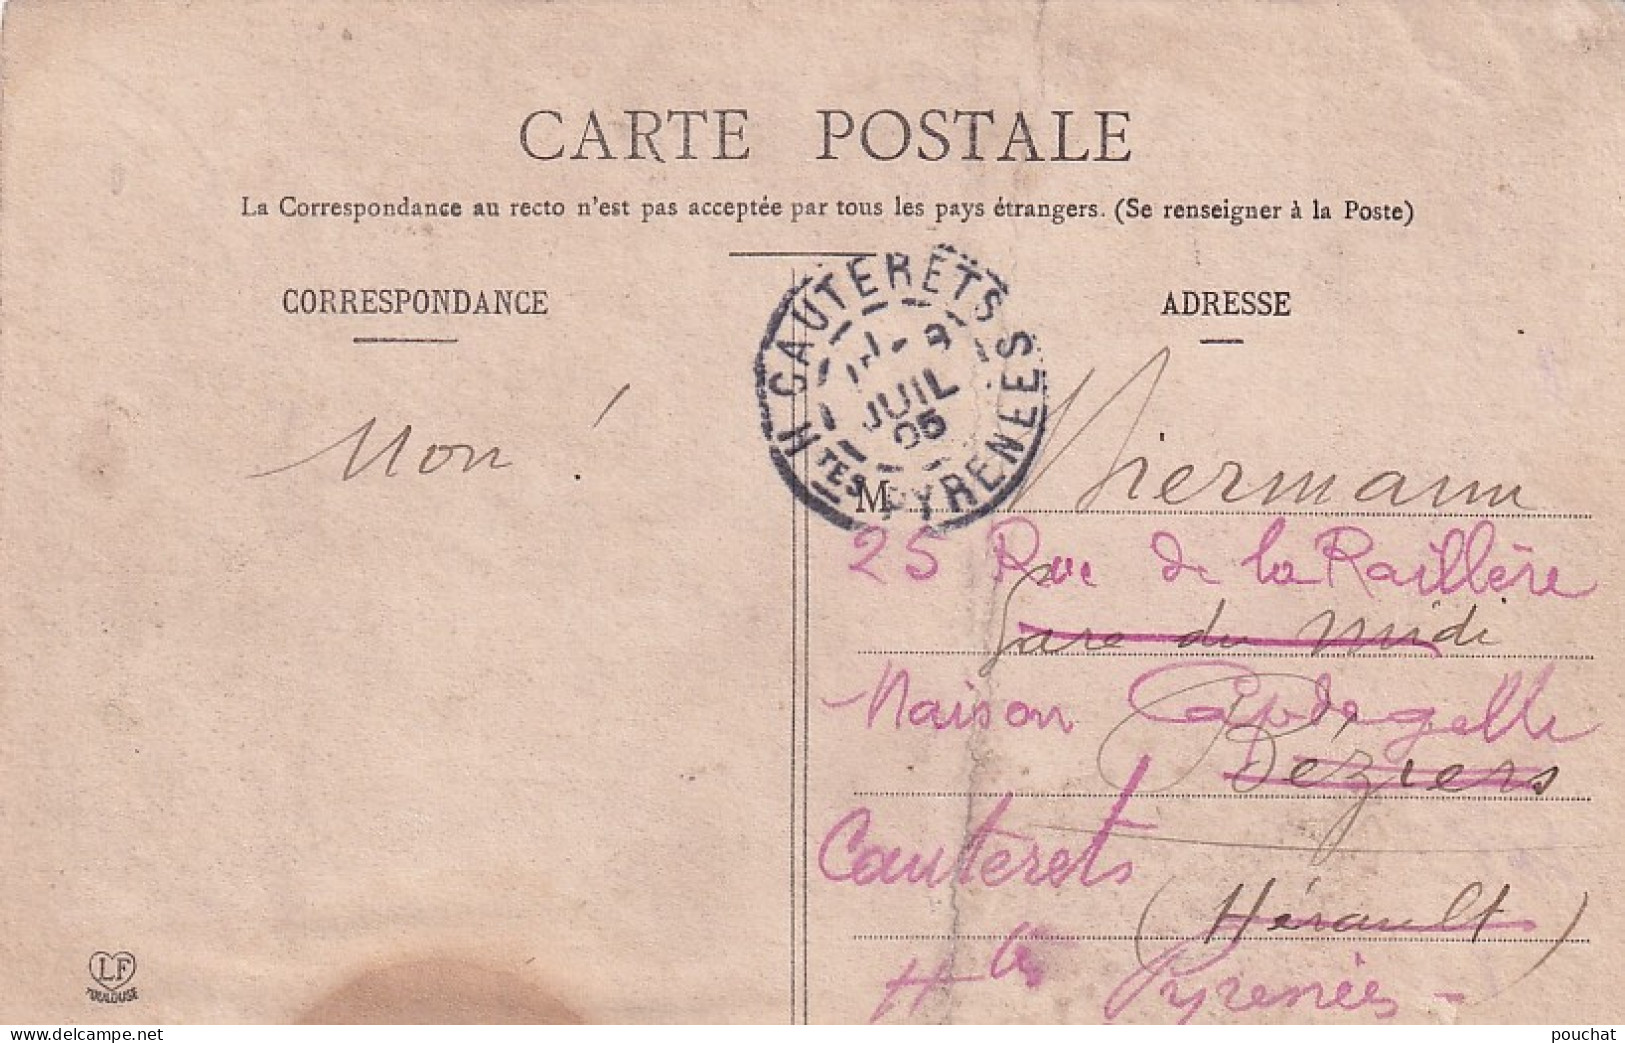 CARTE POSTALE
La Correspondance au recto n'est pas acceptée par tous les pays étrangers. (Se renseigner à la Poste)
CORRESPONDANCE
ADRESSE
CAUTERETS
JUIL
05
HTES PYRENEES
Mon !
M
25 Rue de la Raillère
Gare du Midi
Maison Capdegelle
Béziers
Cauterets
(Hérault)
Htes Pyrenées -
LF
TOULOUSE
pouchat